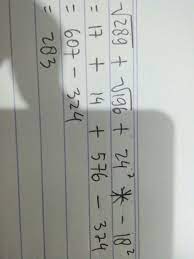 √289 + √196 + 24² * - 18²
= 17 + 14 + 576 - 324
= 607 - 324
= 283